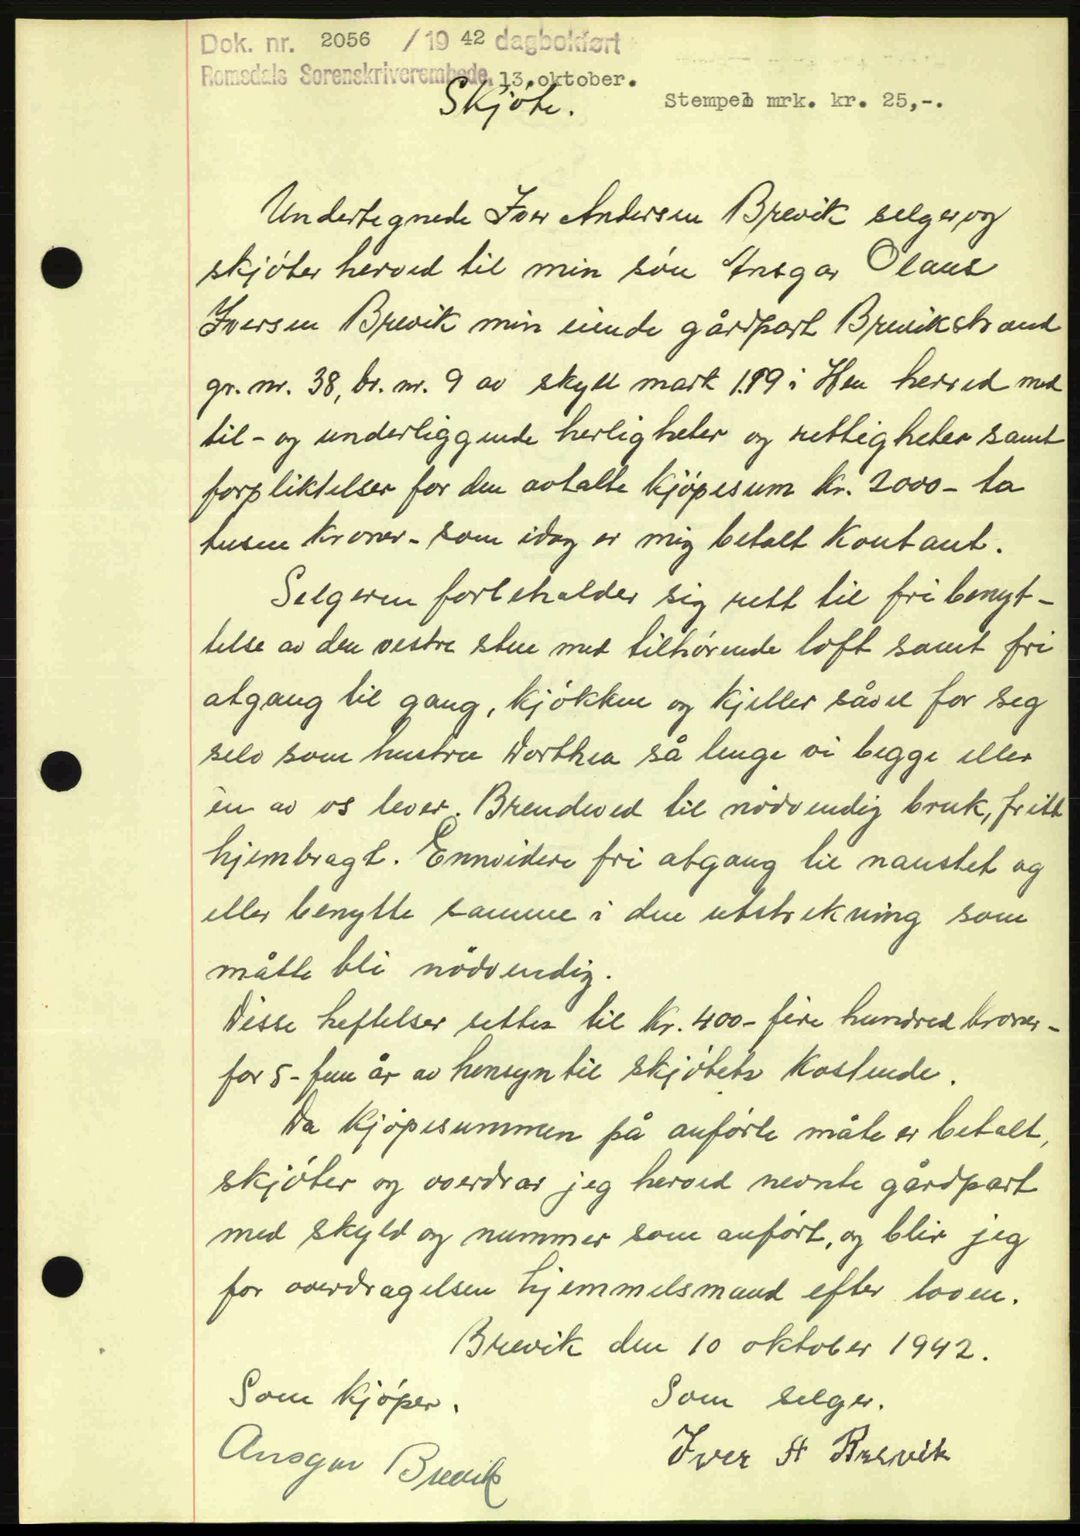 Dok. nr. 2056 / 19 42 dagbokført
Romsdals Sorenskriverembede, 13. oktober.
Stempel mrk. kr. 25,-.
Skjöte.
Undertegnede Iver Andersen Brevik selger og
skjöter herved til min sön Ansgar Olaus
Iversen Brevik min eiende gårdpart Brevikstrand
gr. nr. 38, br. nr. 9 av skyld mark 1.89 i Hen herred med
til- og underliggende herligheter og rettigheter samt
forpliktelser for den avtalte kjöpesum kr. 2000- to
tusen kroner- som idag er mig betalt kontant.
Selgeren forbeholder sig rett til fri benyt-
telse av den vestre stue med tilhörende loft samt fri
atgang til gang, kjökken og kjeller såvel for seg
selv som hustru Dorthea så lenge vi begge eller
en av os lever. Brendeved til nödvendig bruk, fritt
hjembragt. Ennvidere fri atgang til naustet og
eller benytte samme i den utstrekning som
måtte bli nödvendig.
Disse heftelser settes til kr. 400- fire hundred kroner-
for 5- fem år av hensyn til skjötets kostende.
Da kjöpesummen på anförte måte er betalt,
skjöter og overdrar jeg herved nevnte gårdpart
med skyld og nummer som anfört, og blir jeg
for overdragelsen hjemmelsmand efter loven.
Brevik den 10 oktober 1942.
Som kjöper. Som selger.
Ansgar Brevik Iver A Brevik